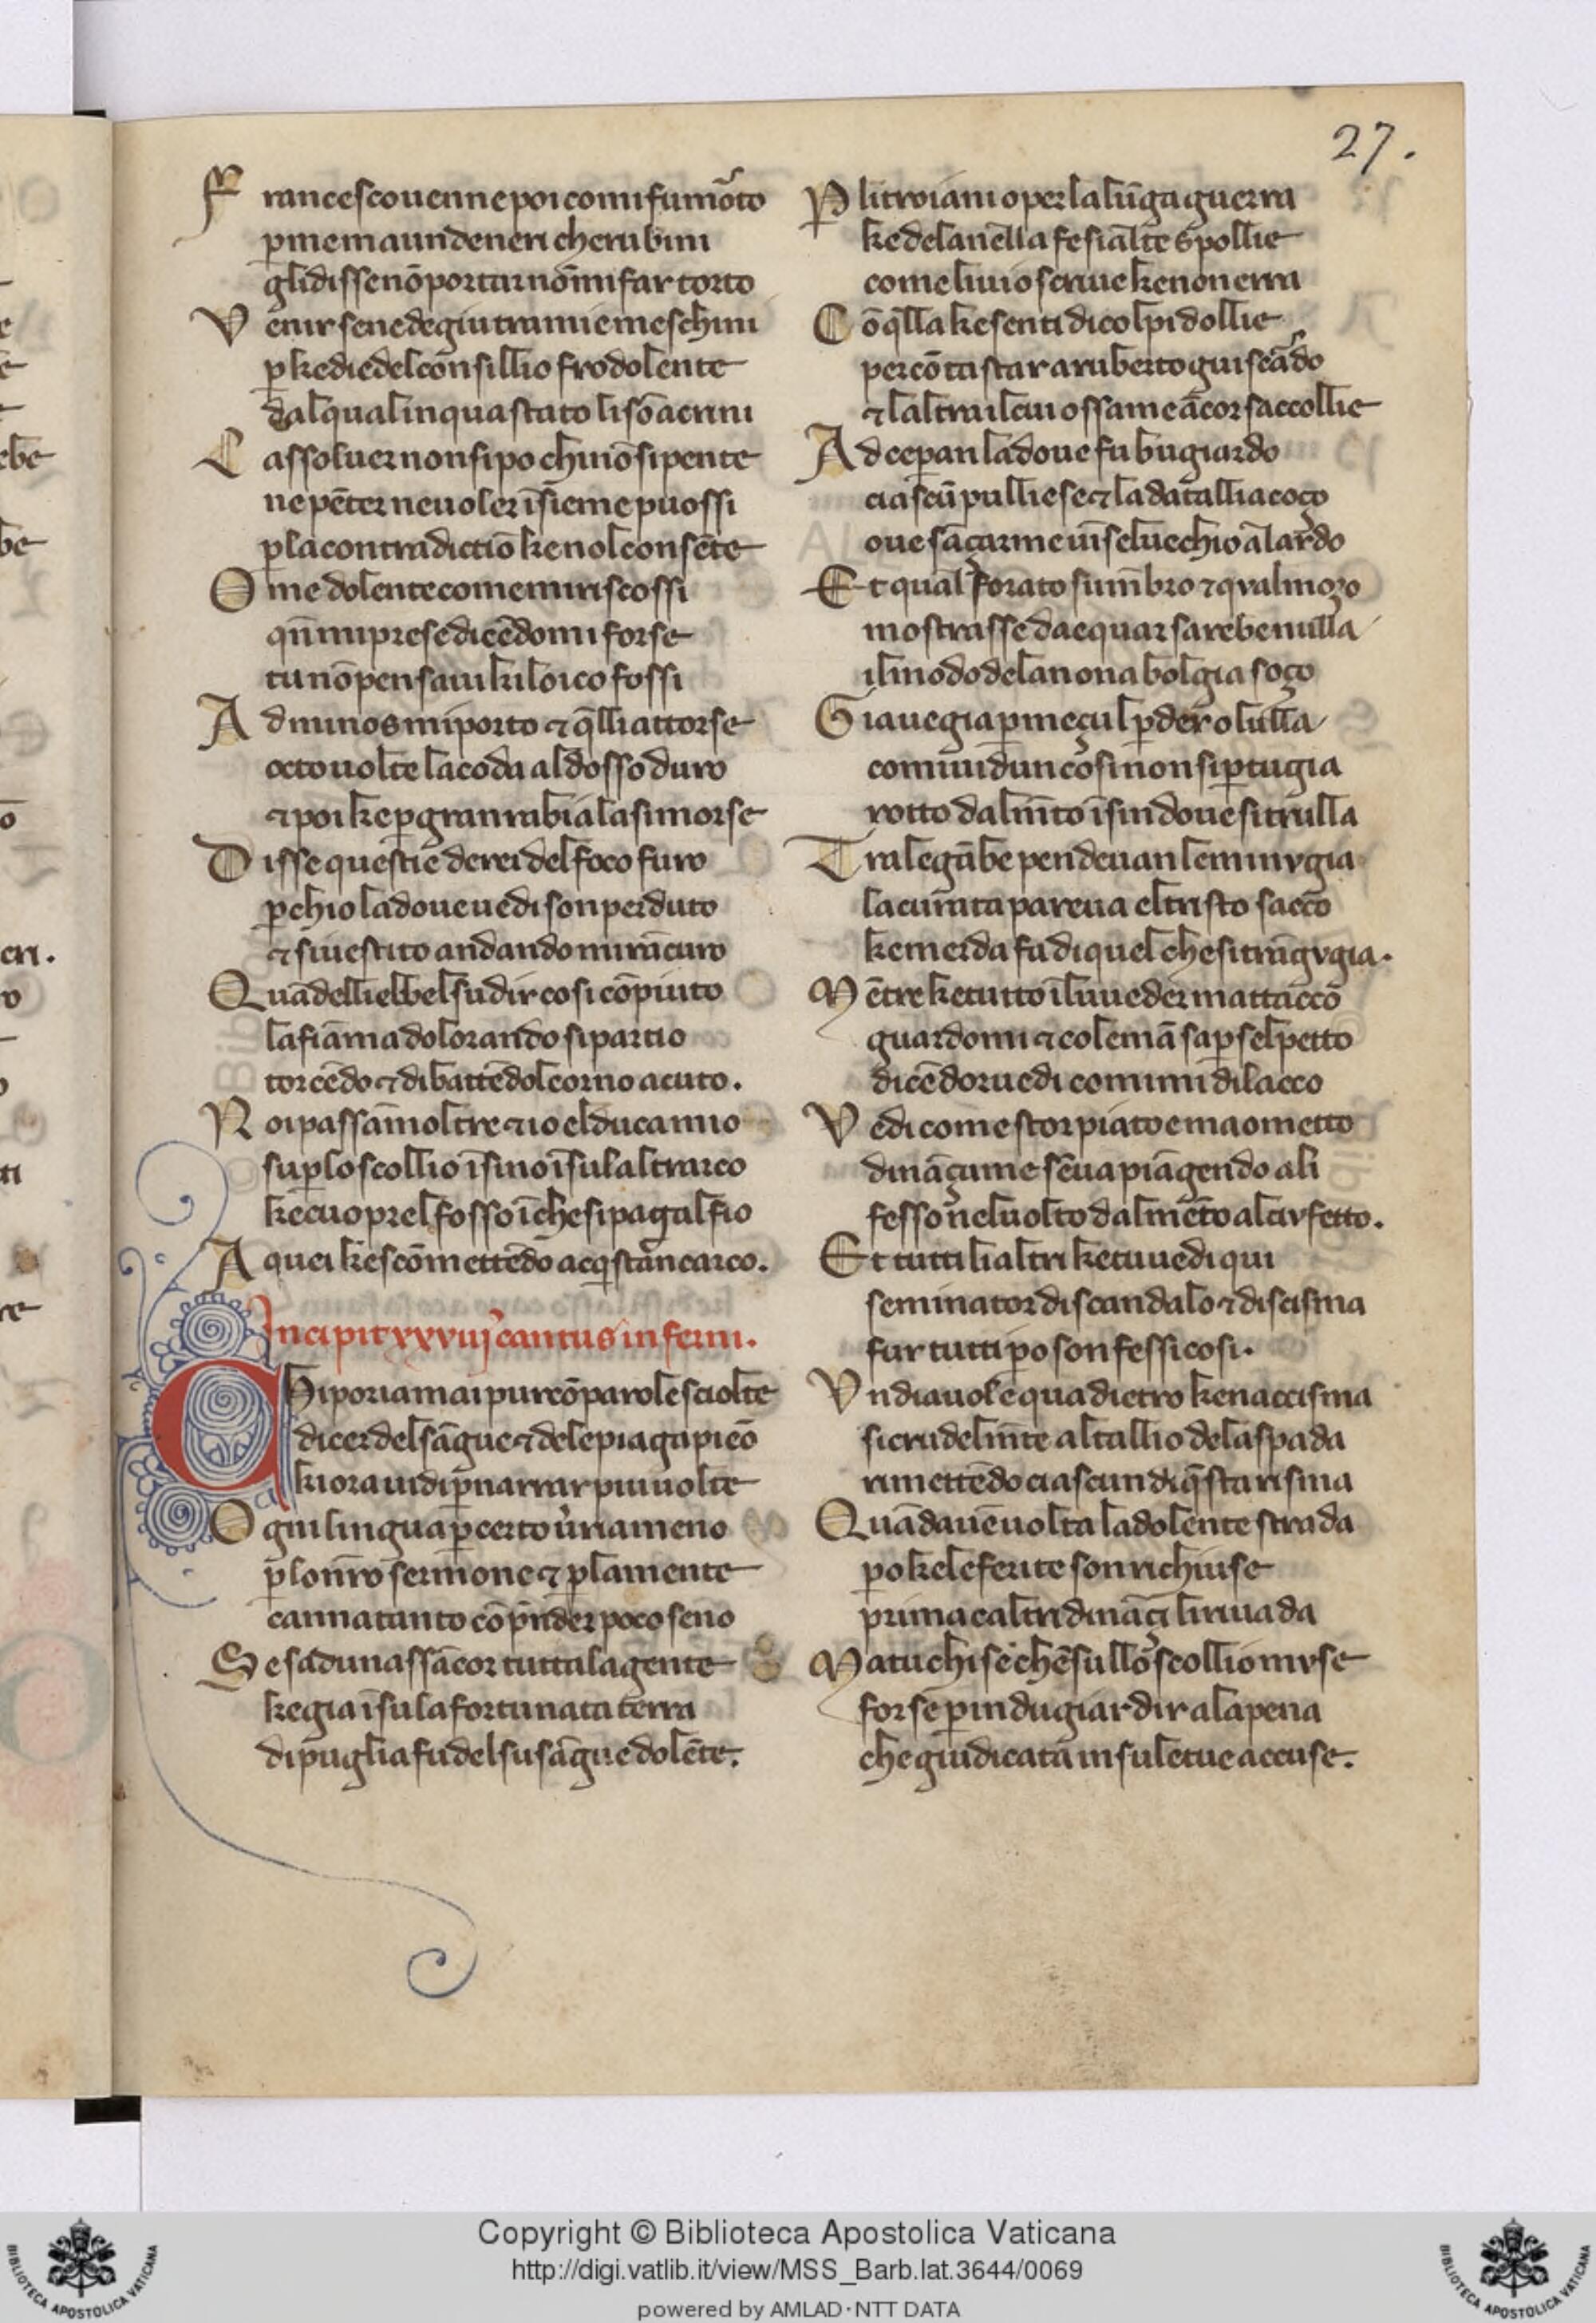 27.
Francesco uenne poi comi fu mo᷑to
p̱ me ma un deneri cherubini
gli disse nō portar nō mi far torto
Venir sene de giu tra miei meschini
p̱ ke die del consillio frodolente
dal qual in qua stato li sō a crini
C assoluer non si po chi nō si pente
ne pēter ne uoler īsieme puossi
p̱ la contradictiō ke nol consēte
O me dolente come mi riscossi
qn̄ mi prese dicēdomi forse
tu nō pensaui ki loico fossi
Ad minos mi porto ⁊ q̄lli attorse
octo uolte la coda al dosso duro
⁊ poi ke p̱ gran rabia la si morse
Disse questi e de rei del foco furo
p̱ chio la doue uedi son perduto
⁊ si uestito andando mi rācuro
Quādelli elbel su dir cosi cōpiuto
la fiāma dolorando si partio
torcēdo ⁊ dibattēdol corno acuto.
Noi passam oltre ⁊ io el duca mio
su p̱ lo scollio īsino ī sul altrarco
ke cuoprel fosso ī che si paga l fio
A quei ke scōmettēdo acq̄stan carco.
Incipit xxviij cantus inferni.
Chi poria mai pur cō parole sciolte
dicer del sāgue ⁊ dele piaga pieō
ki ora uidi p̱ narrar piu uolte
Ogni lingua p̱ certo u̓ria meno
p̱ lo nr̄o sermone ⁊ p̱ la mente
canna tanto cō p̄nder poco seno
Se sadunassācor tutta la gente
ke gia ī su la fortunata terra
di puglia fu del su sāgue dolēte.
P li troiani o per la lūga guerra
ke de lanella fe si alte spollie
come liuio scriue ke non erra
Cō q̄lla ke senti di colpi dollie
per cōtastar a ruberto guiscārdo
⁊ laltra il cui ossame ācor saccollie
Ad ceperan la doue fu bugiardo
ciascū pulliese ⁊ la da tallia coço
oue sāçarme uīse l uechio alardo
Et qual forato su mēbro ⁊ qual moço
mostrasse da equar sarebe nulla
il modo de la nona bolgia soço
Gia uegia p̱ meçul p̱der o lulla
com iuidi un cosi non si p̱tugia
rotto dal mīto īsin doue si trulla
Tra le gābe pendeuan le minugia
la curata pareua el tristo sacco
ke merda fa di quel che si trāgugia.
Mētre ke tutto ī lui ueder mattacco
guardomi ⁊ co le mā sap̱sel petto
dicēdo or uedi com i mi dilacco
Vedi come storpiato e maometto
dināçi a me sē ua piāgendo ali
fesso nel uolto dal mēto al ciufetto.
Et tutti li altri ke tu uedi qui
seminator di scandalo ⁊ di scisma
fur tutti p̱o son fessi cosi.
Vn diauol e qua dietro ke naccisma
si crudelmīte al tallio de la spada
rimettēdo ciascun di q̄sta risma
Quādauē uolta la dolente strada
p̱o ke le ferite son richiuse
prima caltri dināçi li riuada
Ma tu chi se che sullo scollio muse
forse p̱ indugiar dir a la pena
che giudicata in su le tue accuse.
Copyright © Biblioteca Apostolica Vaticana
http://digi.vatlib.it/view/MSS_Barb.lat.3644/0069
powered by AMLAD·NTT DATA
BIBLIOTECA APOSTOLICA VATICANA
BIBLIOTECA APOSTOLICA VATICANA